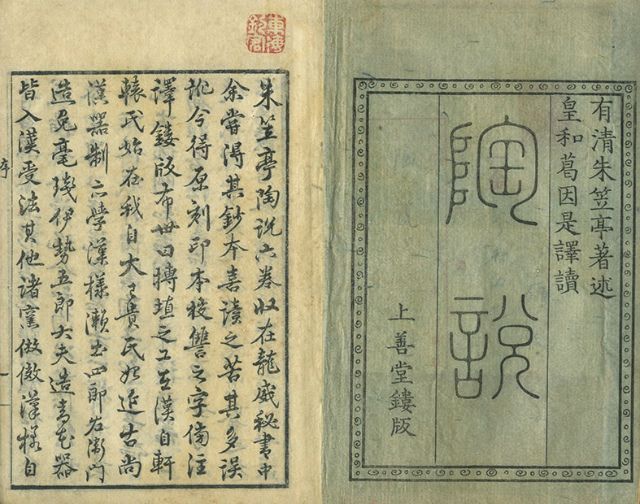 有清朱笠亭著述
皇和葛因是譯讀
陶說
上善堂鏤版
朱笠亭陶說六卷收在龍威秘書中
余嘗得其鈔本喜讀之苦其多誤
訛今得原刻印本挍讐之字傍注
譯鏤版布世曰摶埴之工在漢自軒
轅氏始在我自大己貴氏始近古尚
漢器制亦學漢樣瀨戶四郎右衞門
造兔毫琖伊勢五郎大夫造青花器
皆入漢受法其他諸窯倣傚漢樣自
序
一